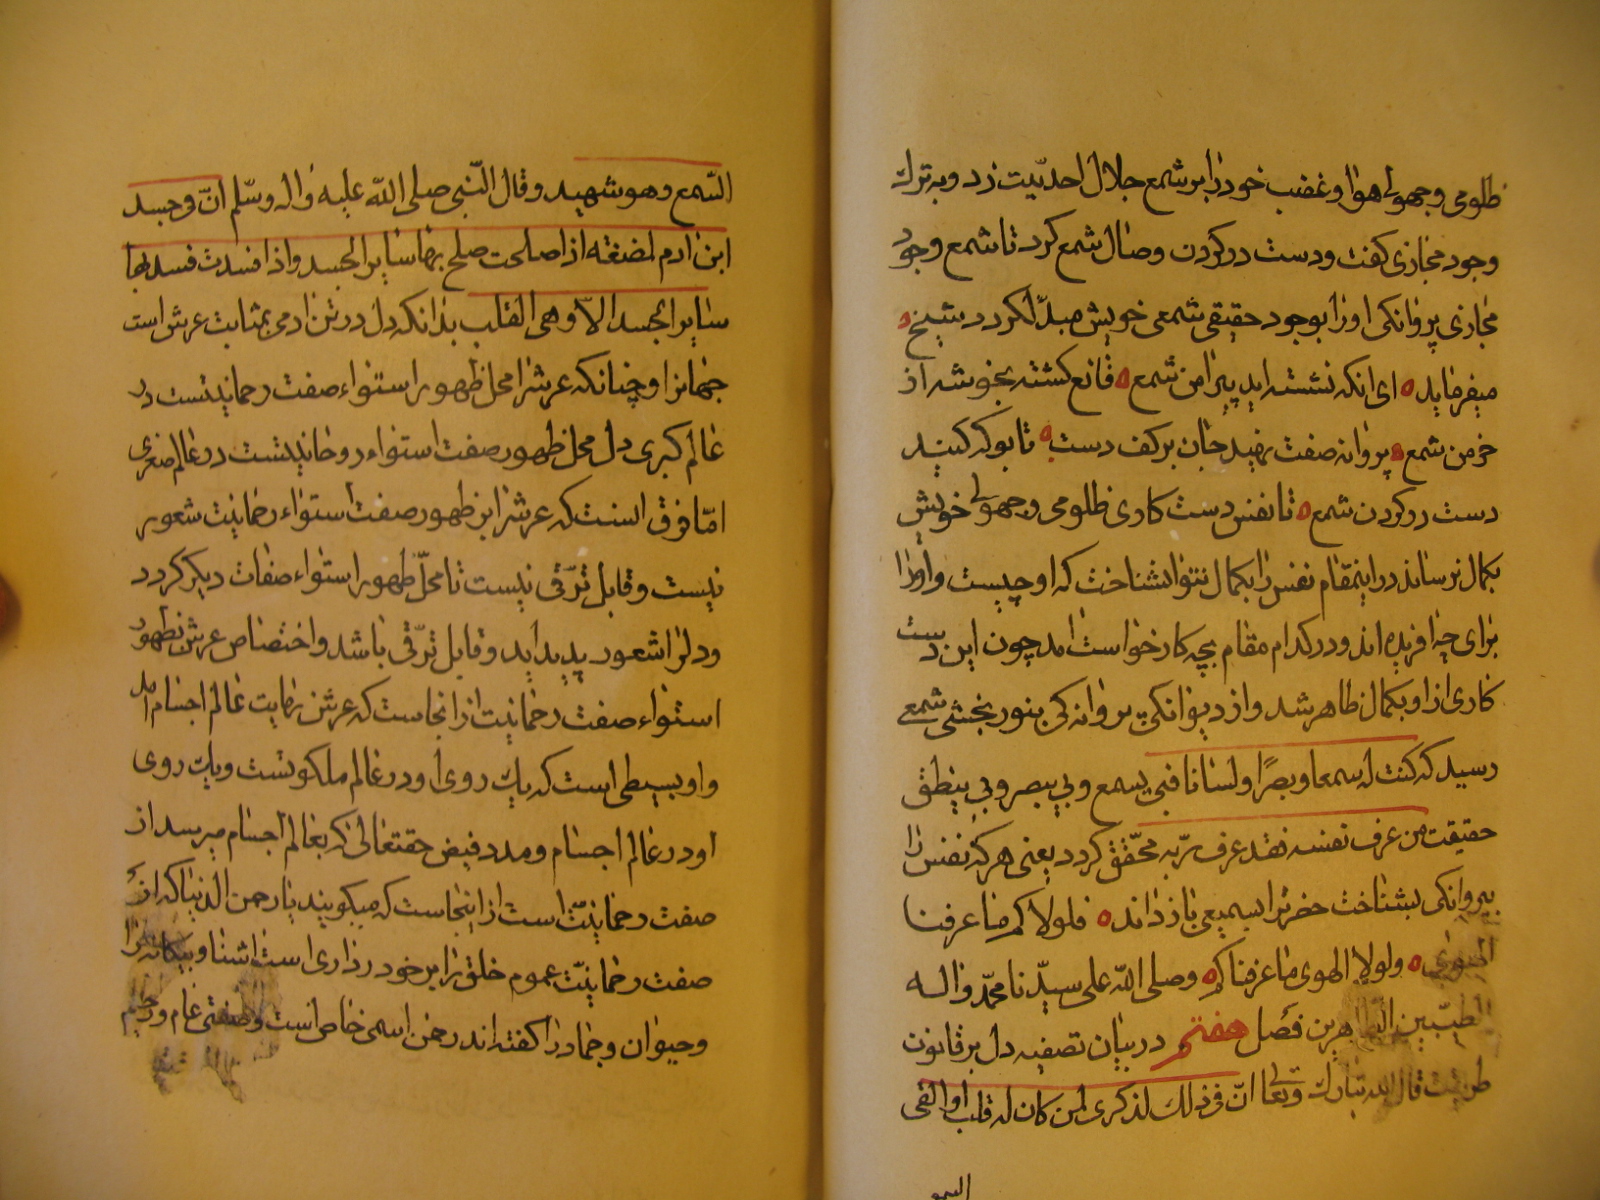 ظلومی و جهولی هوا و غضب خود را بر شمع جلال احدیّت زد و به ترک
وجود مجازی گفت و دست در گردن وصال شمع کرد تا شمع وجود
مجازی پروانکی او را بوجود حقیقی شمعی خویش مبدّل کرد شیخ
میفرماید ای انکه نشسته اید پیرامن شمع قانع کشته بخوشه از
خرمن شمع پروانه صفت نهید جان بر کف دست تا بو که کنید
دست در کردن شمع تا نفس دست کاری ظلومی و جهولی خویش
بکمال نرساند در اینمقام نفس را بکمال نتوان شناخت که او چیست و او را
برای چه افریده اند و در کدام مقام بچه کار خواست امد چون این دست
کاری از او بکمال ظاهر شد و از دیوانکی پروانه کی بنور بخشی شمعی
رسید که کنت له سمعا و بصرًا و لسانا فبی یسمع و بی یبصر و بی ینطق
حقیقت من عرف نفسه فقد عرف ربّه محقّق کردد یعنی هر که نفس را
بپروانکی بشناخت حضرت را بسمیعی باز داند فلولاکم ما عرفنا
الهوی ولولا الهوی ما عرفناکم وصلی اللّه علی سیّدنا محمّد واله
الطیّبین الطاهرین فصل هفتم در بیان تصفیه دل بر قانون
طریقت قال الله تبارک وتعالی انّ فی ذلک لذکری لمن کان له قلب او القی
السمع
السّمع وهو شهید وقال النّبی صلی اللّه علیه واله وسلّم انّ فی جسد
ابن ادم لمضغة اذا صلحت صلح بها سایر الجسد واذا فسدت فسد بها
سایر الجسد الا وهی القلب بدانکه دل در تن ادمی بمثابت عرش است
جهانرا و چنانکه عرش را محل ظهور استواء صفت رحمانیتست در
عالم کبری دل محل ظهور صفت استواء روحانیتست در عالم صغری
امّا فرق انست که عرش را بر ظهور صفت استواء رحمانیت شعور
نیست و قابل ترّقی نیست تا محلّ ظهور استواء صفات دیکر کردد
و دل را شعور پدید اید و قابل ترّقی باشد و اختصاص عرش بظهور
استواء صفت رحمانیت از انجاست که عرش نهایت عالم اجسام امد
و او بسیطی است که یک روی او در عالم ملکوتست و یک روی
او در عالم اجسام و مدد فیض حقتعالی که بعالم اجسام میرسد از
صفت رحمانیّت است از اینجاست که میکویند یا رحمن الدنیا که از
صفت رحمانیّت عموم خلق را بر خورداری است اشنا و بیکانه را
و حیوان و جماد را کفته اند رحمن اسمی خاص است و صفتی عام و رحیم